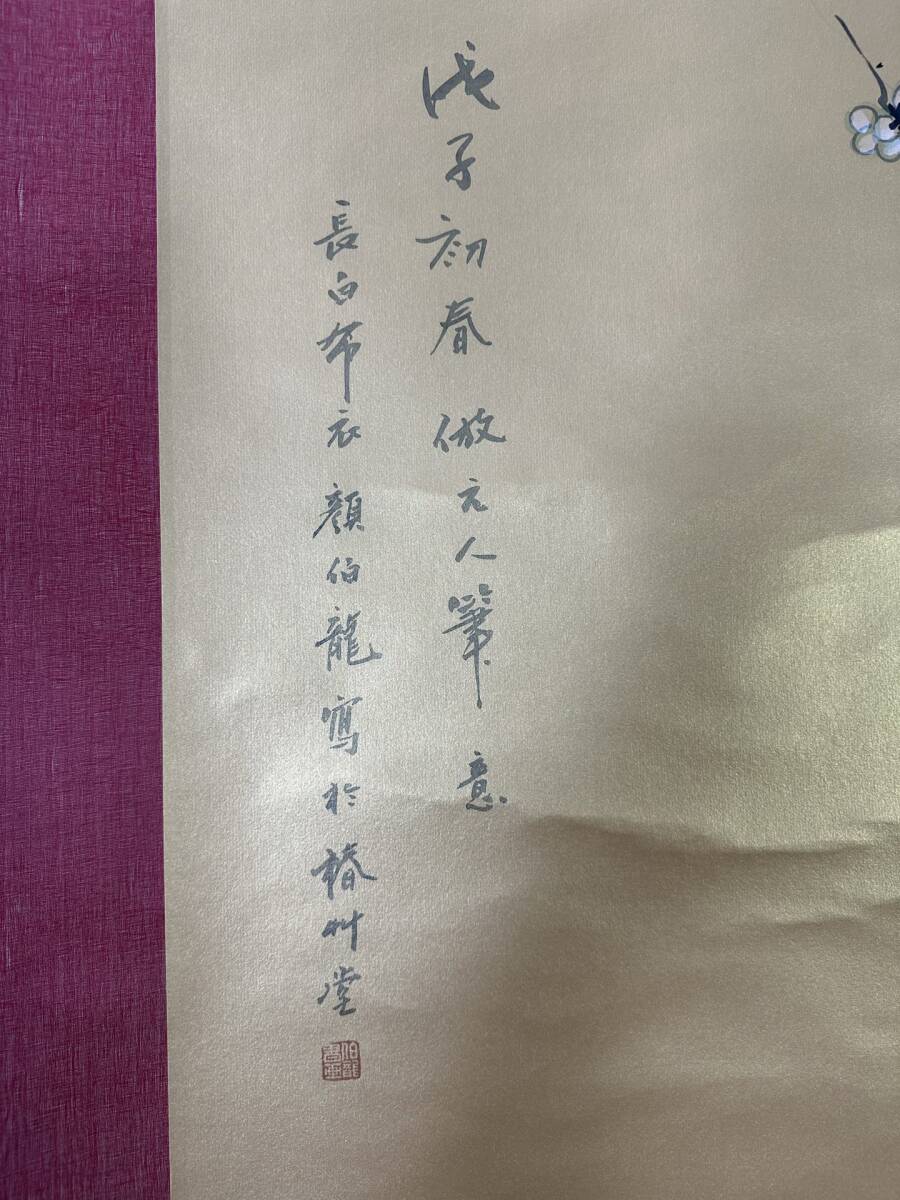 戊子初春倣元人筆意
長白布衣顏伯龍寫於椿艸堂
伯龍書画